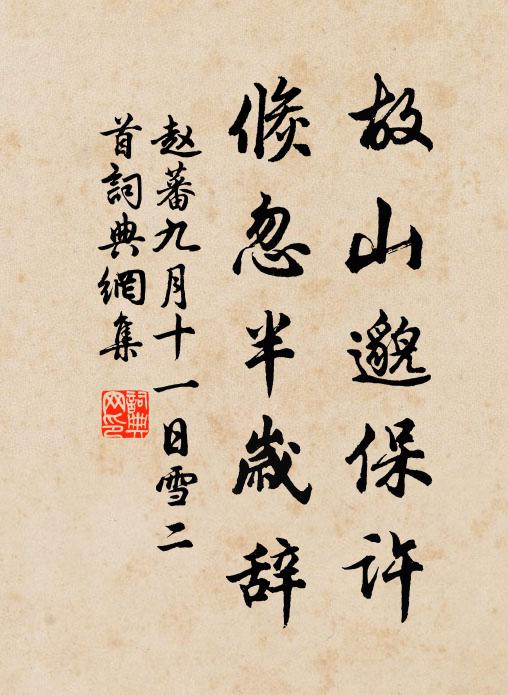 故山邈保许
倏忽半歲辞
赵蕃九月十一日雪二
首詞典網集
詞典网印